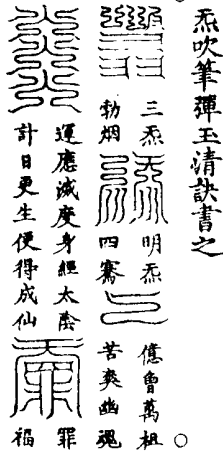 炁吹筆彈玉清訣書之
三炁
勃烟
明炁
四騫
億曾萬祖
苦爽幽魂
運應滅度身經太陰
計日更生便得成仙
罪
福